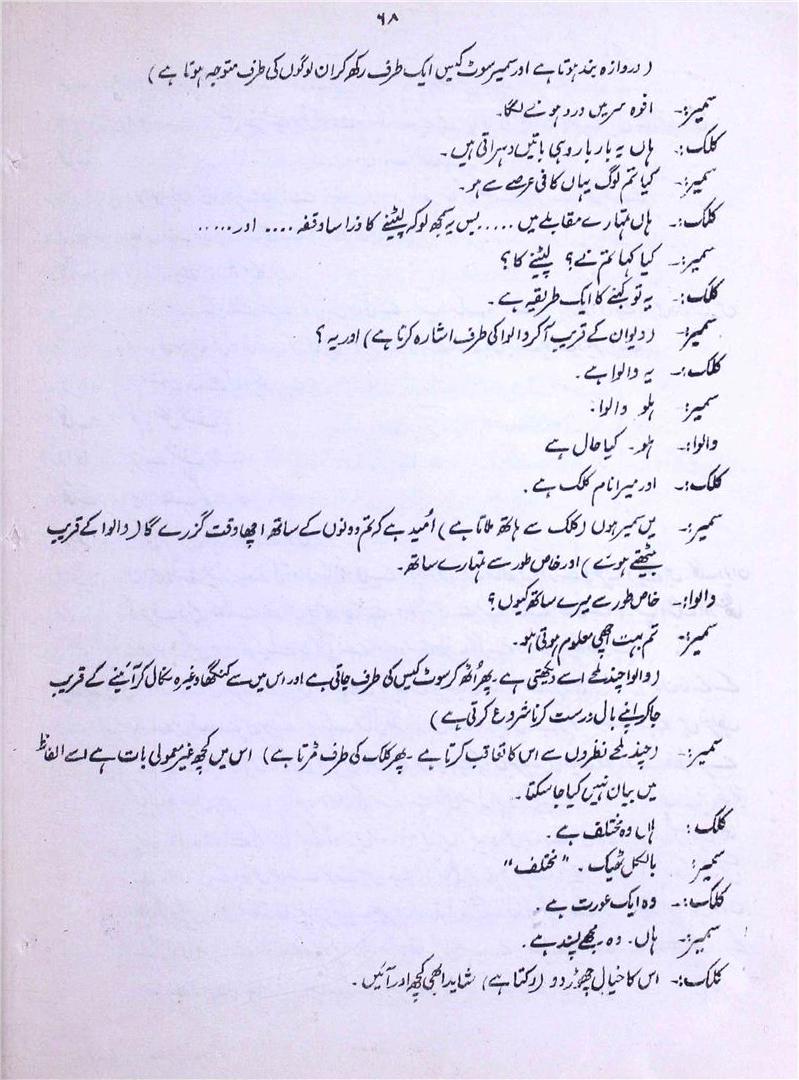 ۶۸
( دروازہ بند ہوتا ہے اور سمیر سوٹ کیس ایک طرف رکھ کر ان لوگوں کی طرف متوجہ ہوتا ہے )
سمیر:۔ افوہ سر میں درد ہونے لگا۔
کلک:۔ ہاں یہ بار بار وہی باتیں دہراتی ہیں۔
سمیر:۔ کیا تم لوگ یہاں کافی عرصے سے ہو۔
کلک:۔ ہاں تمہارے مقابلے میں ..... بس یہ سمجھ لو کہ پلٹنے کا ذرا سا وقفہ .... اور .....
سمیر:۔ کیا کہا تم نے؟ پلٹنے کا؟
کلک:۔ یہ تو کہنے کا ایک طریقہ ہے۔
سمیر:۔ ( دیوان کے قریب آکر والوا کی طرف اشارہ کرتا ہے ) اور یہ ؟
کلک:۔ یہ والوا ہے۔
سمیر:۔ ہلو والوا۔
والوا:۔ ہلو۔ کیا حال ہے
کلک:۔ اور میرا نام کلک ہے۔
سمیر:۔ میں سمیر ہوں ( کلک سے ہاتھ ملاتا ہے ) اُمید ہے کہ تم دونوں کے ساتھ اچھا وقت گزرے گا ( والوا کے قریب
بیٹھتے ہوئے ) اور خاص طور سے تمہارے ساتھ۔
والوا:۔ خاص طور سے میرے ساتھ کیوں؟
سمیر:۔ تم بہت اچھی معلوم ہوتی ہو۔
( والوا چند لمحے اسے دیکھتی ہے۔ پھر اُٹھ کر سوٹ کیس کی طرف جاتی ہے اور اس میں سے کنگھا وغیرہ نکال کر آئینے کے قریب
جاکر اپنے بال درست کرنا شروع کرتی ہے )
سمیر:۔ ( چند لمحے نظروں سے اس کا تعاقب کرتا ہے ۔ پھر کلک کی طرف مُڑتا ہے ) اس میں کچھ غیر معمولی بات ہے اسے الفاظ
میں بیان نہیں کیا جا سکتا ۔
کلک: ہاں وہ مختلف ہے ۔
سمیر: بالکل ٹھیک ۔ "مختلف"
کلک:۔ وہ ایک عورت ہے ۔
سمیر:۔ ہاں۔ وہ مجھے پسند ہے ۔
کلک:۔ اس کا خیال چھوڑ دو ( رکتا ہے ) شاید ابھی کچھ اور آئیں ۔